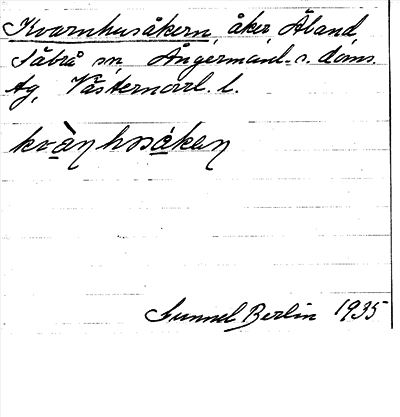 Kvarnhusåkern, åker, Åland,
Säbrå sn, Ångermanl. s. doms.
tg, Västernorrl. l.
Gunnel Berlin 1935